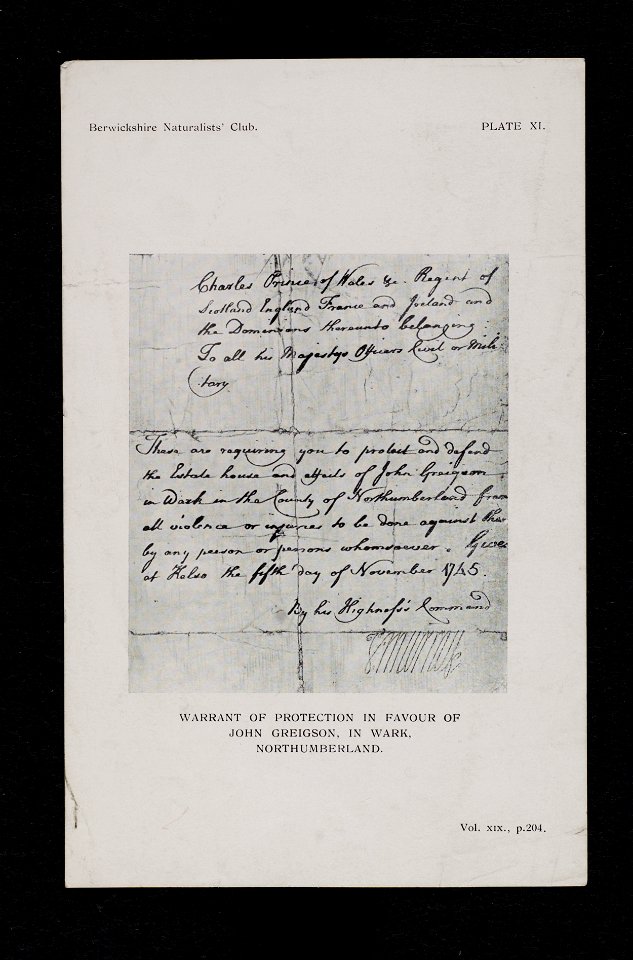 Berwickshire Naturalists' Club.
PLATE XI.
Charles Prince of Wales &c. Regent of
Scotland England France and Ireland and
the Dominions thereunto belonging
To all his Majestys Officers Civil or Mili
tary
These are requiring you to protect and defend
the Estate house and effects of John Greigson
in Wark in the County of Northumberland from
all violence or injuries to be done against them
by any person or persons whomsoever. Given
at Kelso the fifth day of November 1745.
By his Highness's Command
Jmurray
WARRANT OF PROTECTION IN FAVOUR OF
JOHN GREIGSON, IN WARK,
NORTHUMBERLAND.
Vol. XIX., p.204.